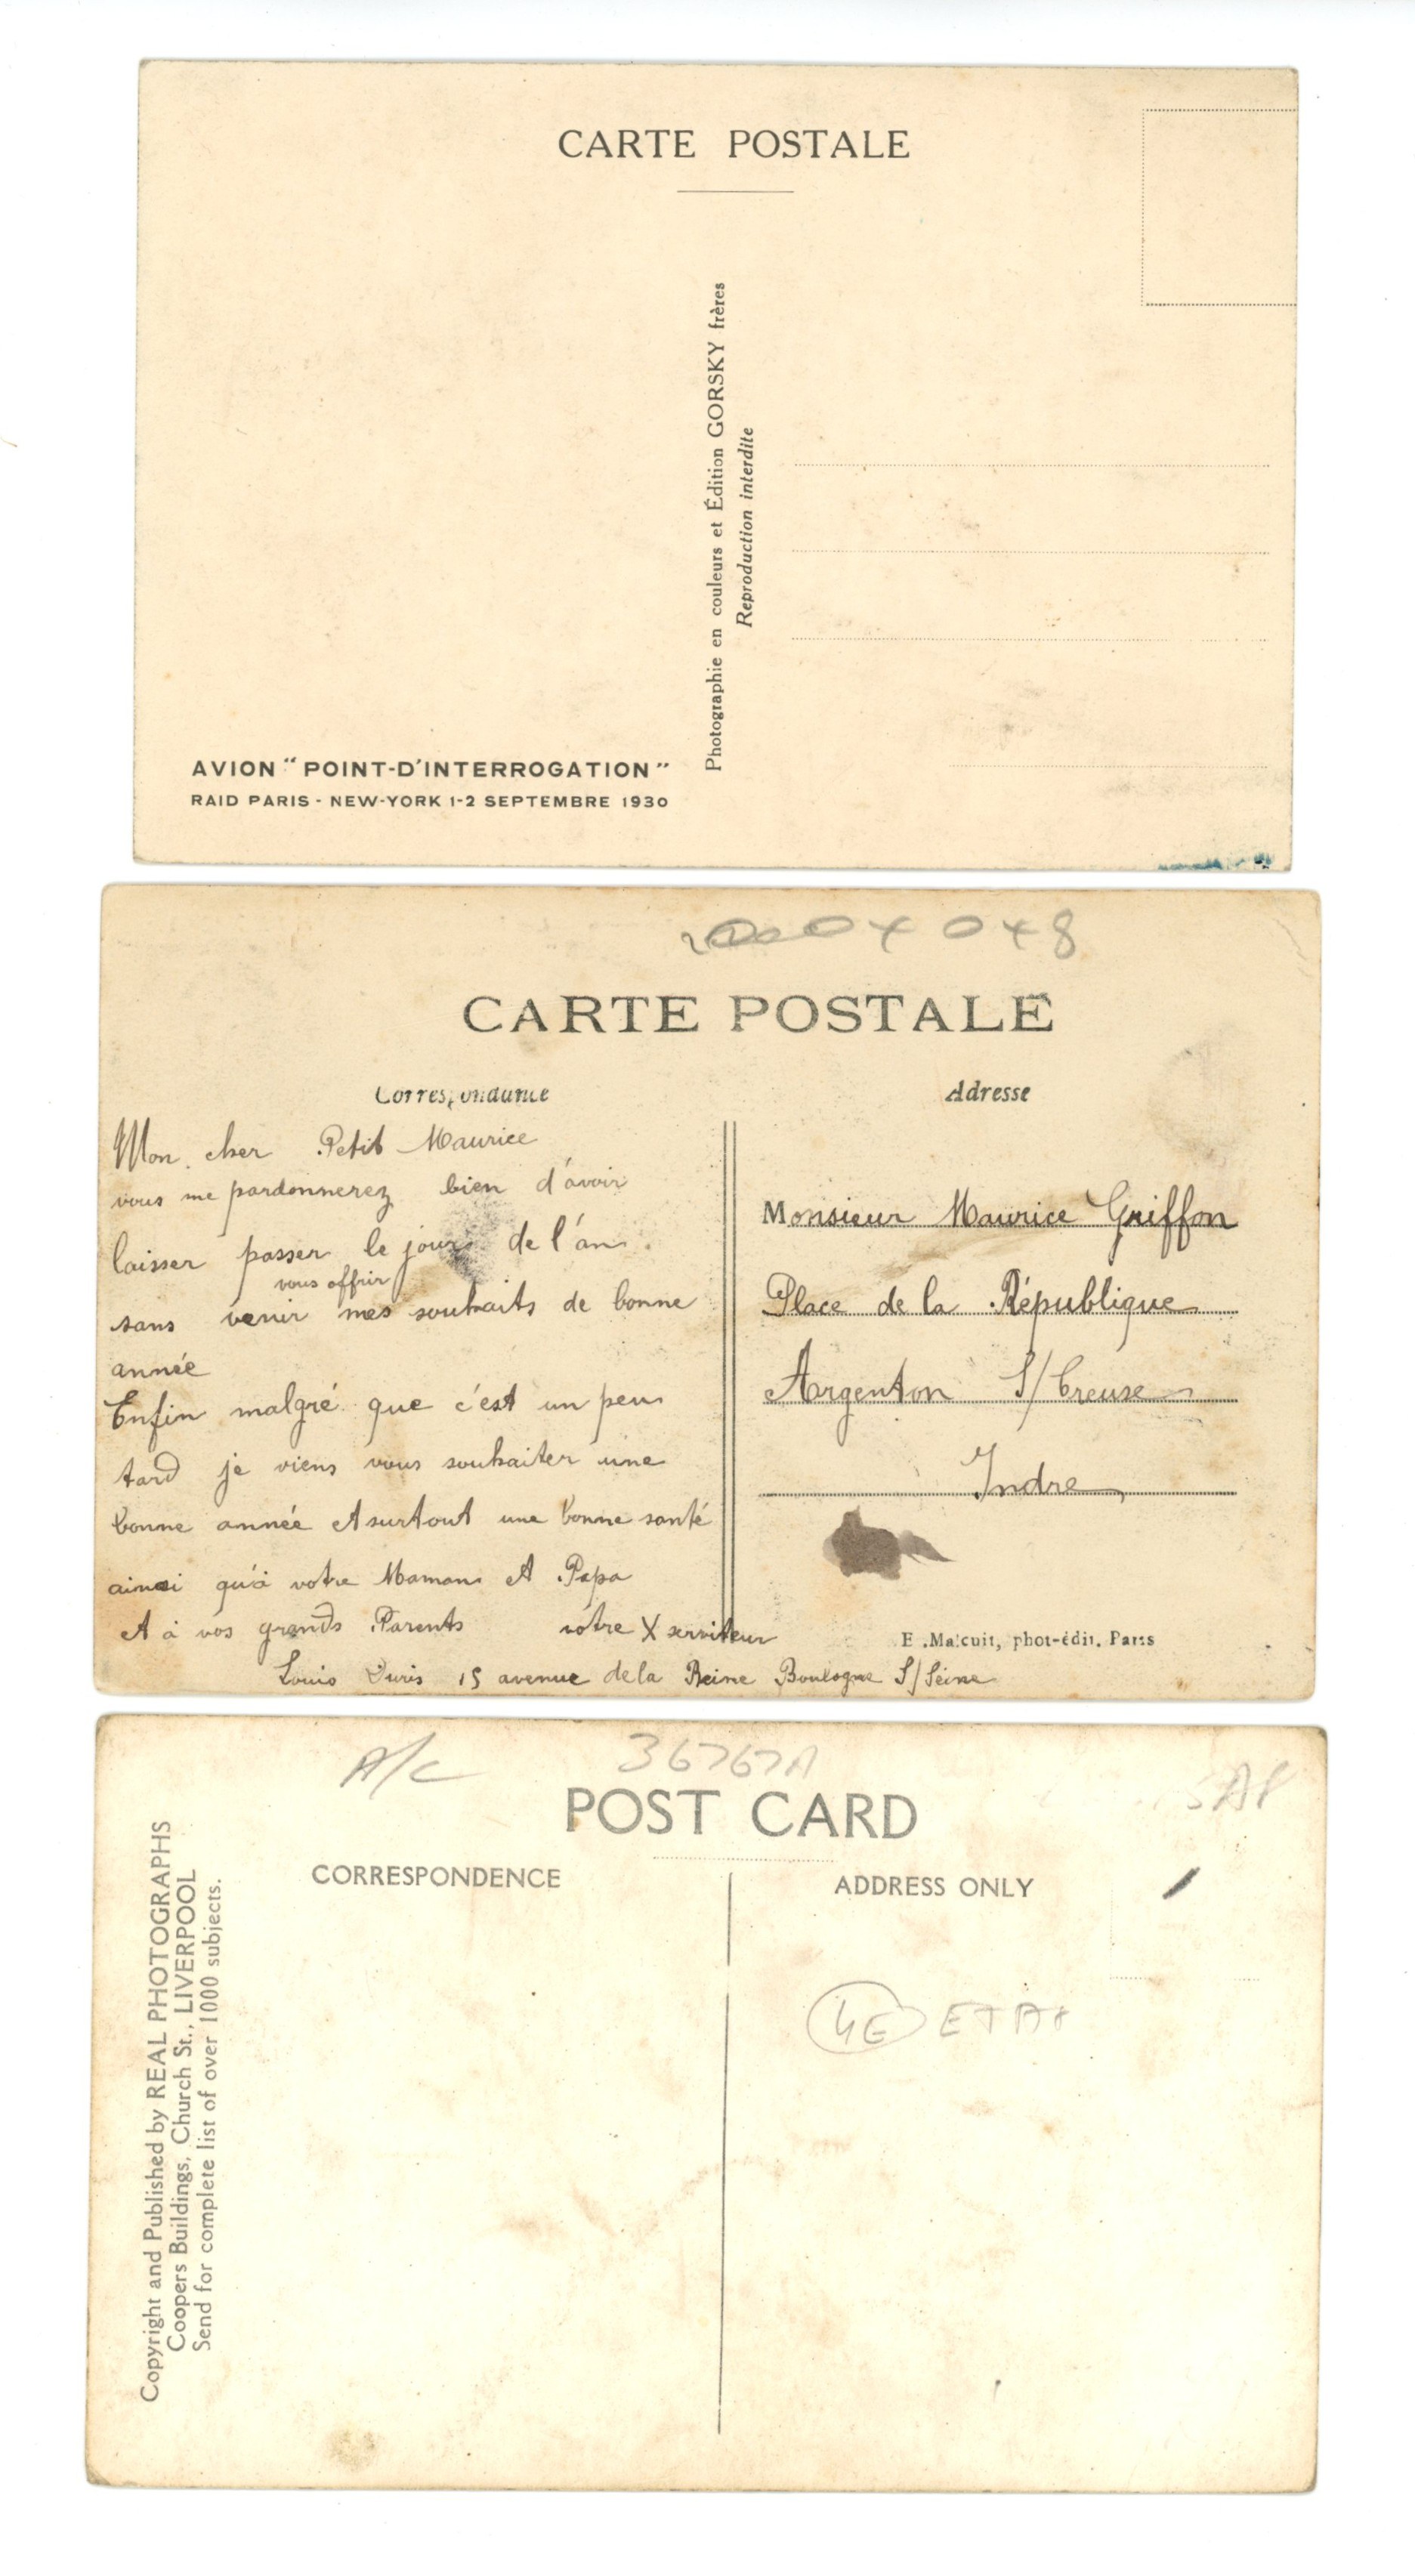 CARTE POSTALE
Photographie en couleurs et Édition GORSKY frères
Reproduction interdite
AVION "POINT-D'INTERROGATION"
RAID PARIS - NEW-YORK 1-2 SEPTEMBRE 1930
CARTE POSTALE
Correspondance
Adresse
Mon cher Petit Maurice
vous me pardonnerez bien d'avoir
laisser passer le jour de l'an
vous offrir
sans venir mes souhaits de bonne
année
Enfin malgré que c'est un peu
tard je viens vous souhaiter une
bonne année et surtout une bonne santé
ainsi qu'à votre Maman et Papa
et à vos grands Parents votre X serviteur
Louis Duris 15 avenue de la Reine Boulogne S/Seine
Monsieur Maurice Griffon
Place de la République
Argenton S/Creuse
Indre
E. Malcuit, phot-édit. Paris
A/C
36767A
POST CARD
CORRESPONDENCE
ADDRESS ONLY
Copyright and Published by REAL PHOTOGRAPHS
Coopers Buildings, Church St., LIVERPOOL
Send for complete list of over 1000 subjects.
4E